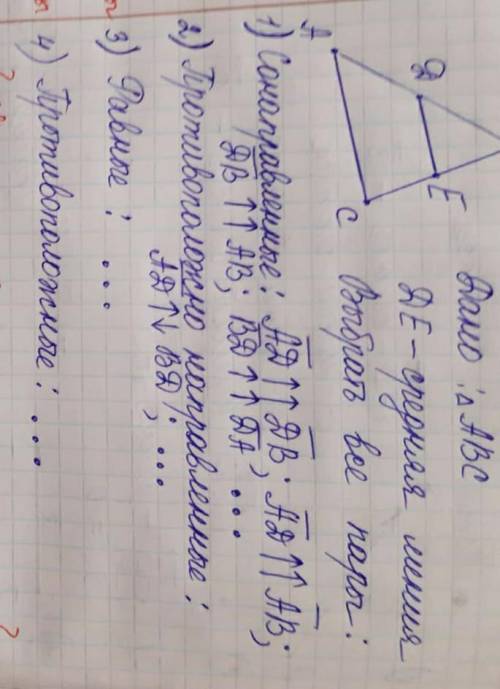 Дано: △ABC
DE – средняя линия
Выбрать все пары:
A
D
E
C
1) Сонаправленные: AD ↑↑ DB; AD ↑↑ AB;
DB ↑↑ AB; BD ↑↑ DA; ...
2) Противоположно направленные:
AD ↑↓ BD; ...
3) Равные: ...
4) Противоположные: ...